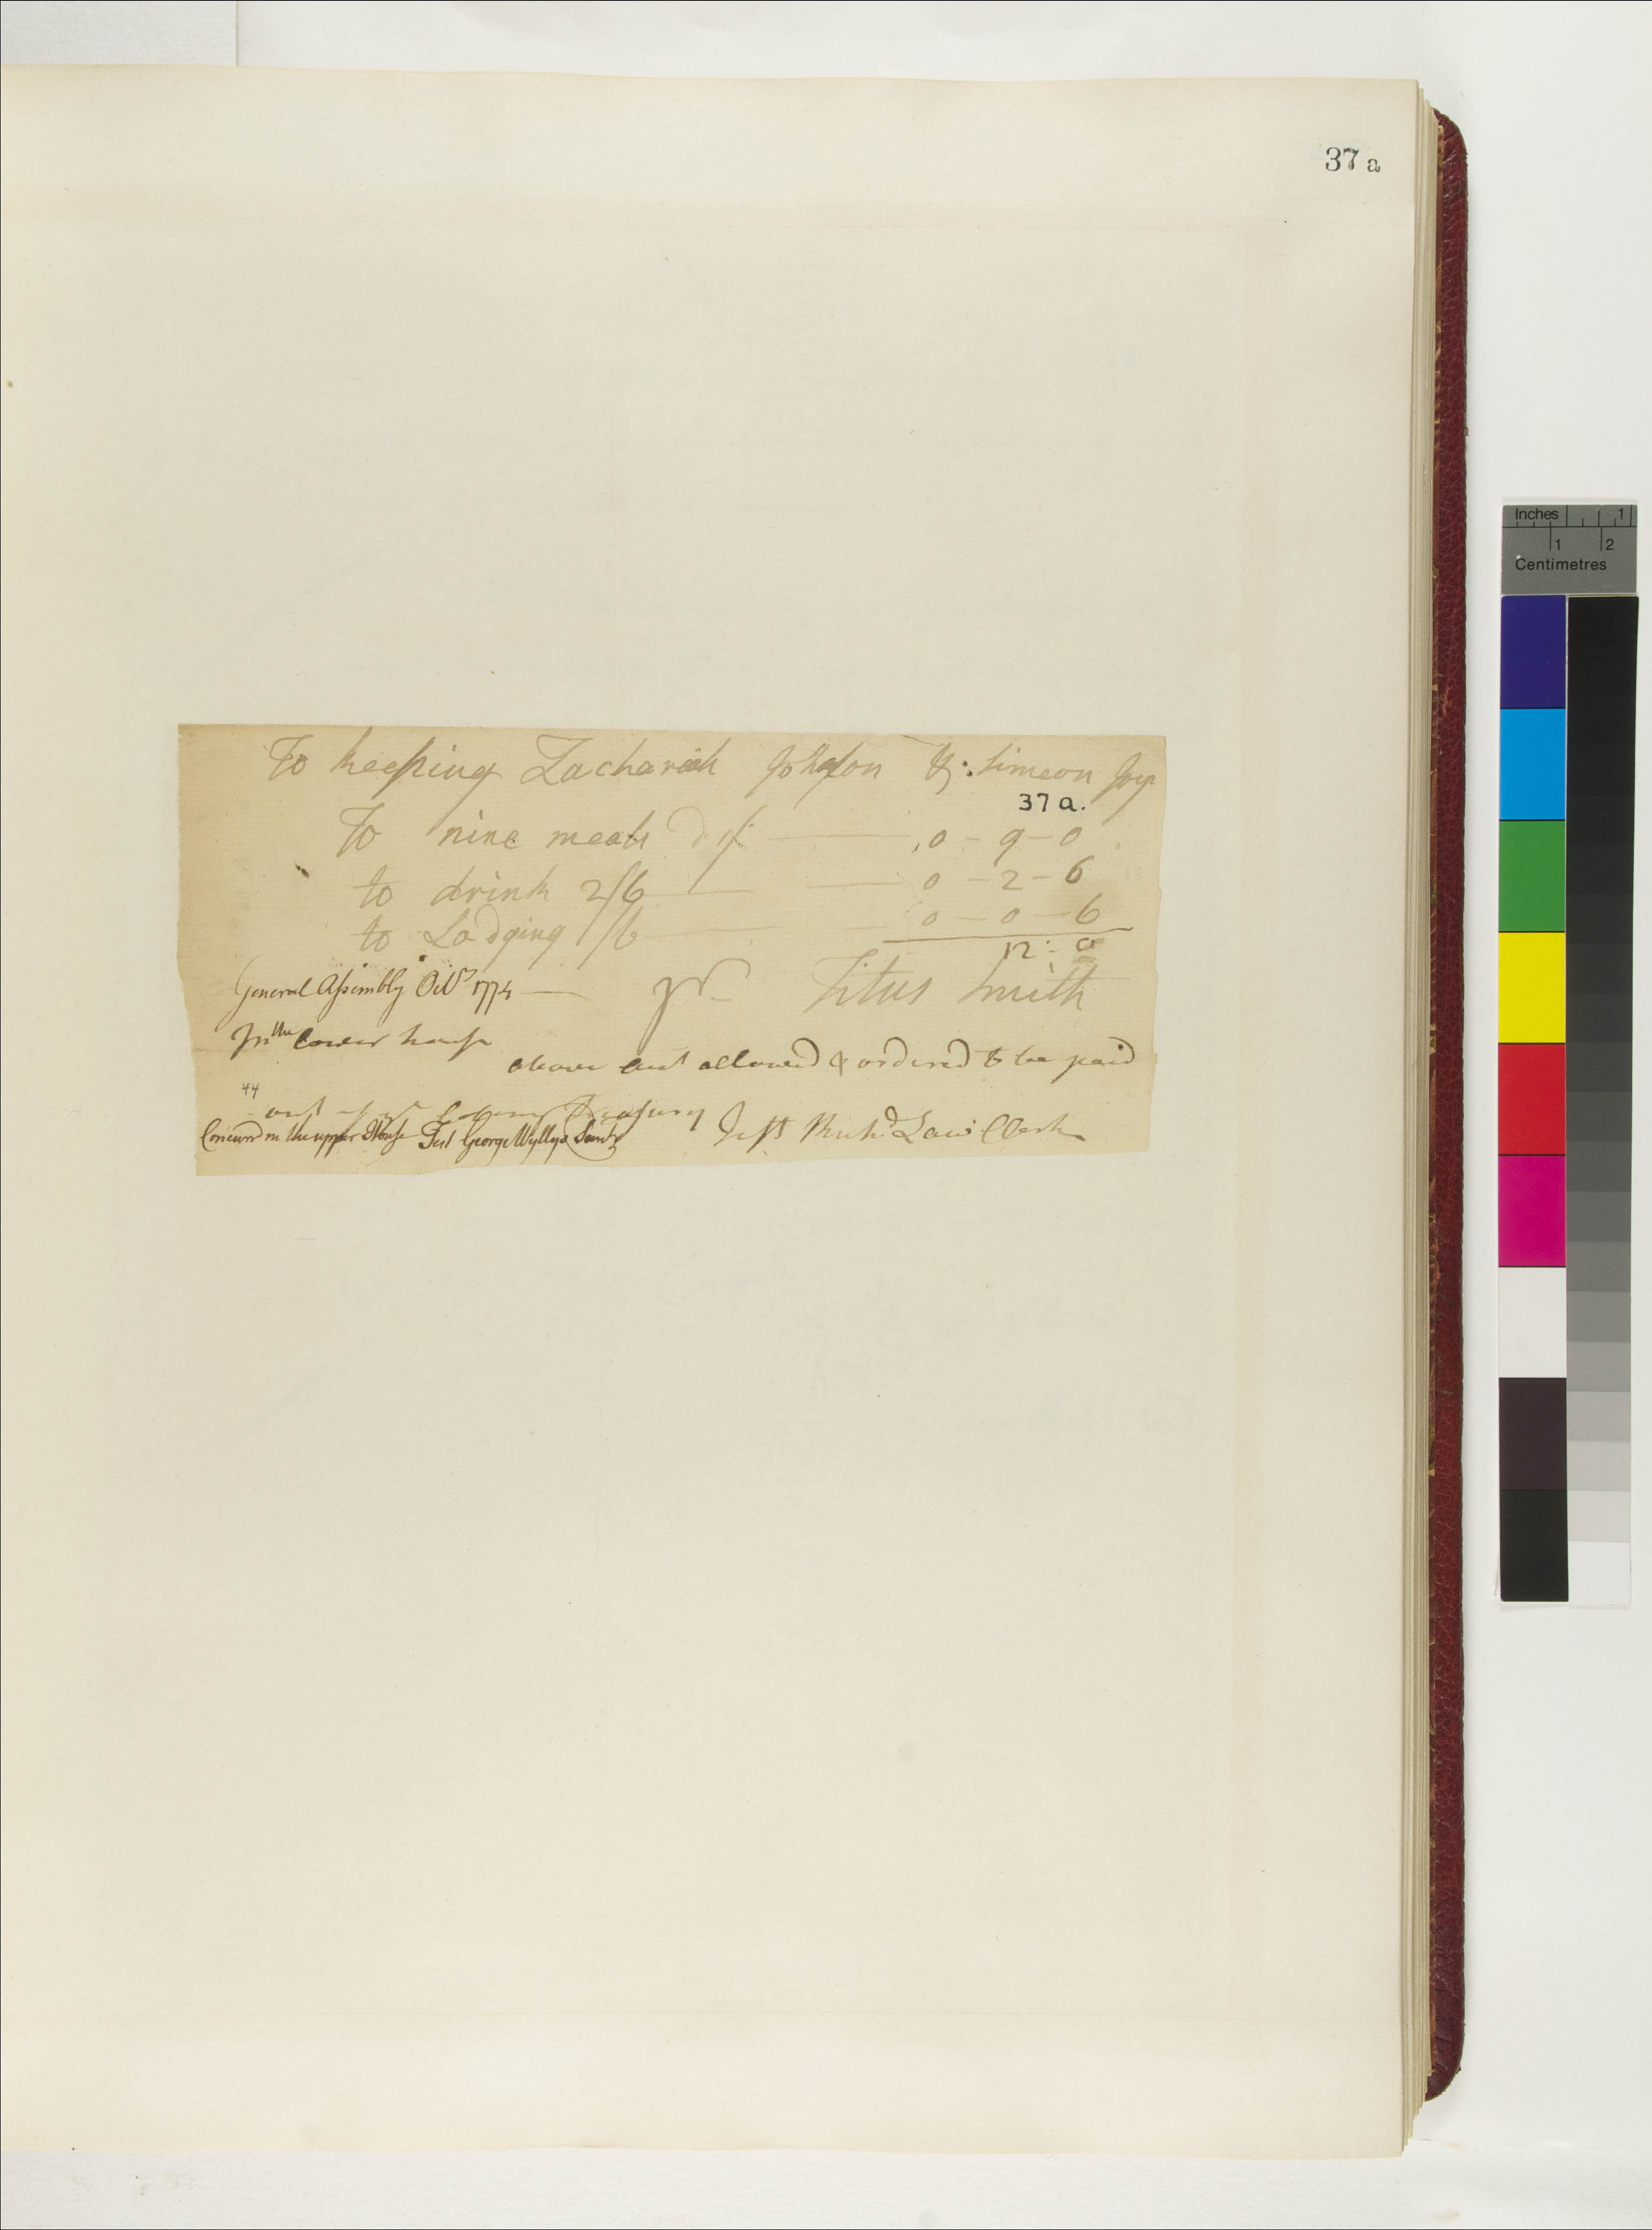 37 a
To keeping Zachariah Johnson & Simeon Joy
37 a.
To nine meals
0 - 9 - 0
to drink 2/6 0 - 2 - 6
to Lodging /6 0 - 0 - 6
12 - 0
General Assembly Octr 1774 pr Titus Smith
In the lower house
above acct allowed & ordered to be paid
44
out of the Colony Treasury
Test Richd Law Clerk
Concurrd in the upper House Test George Wyllys Secretr
Inches 1
1 2
Centimetres